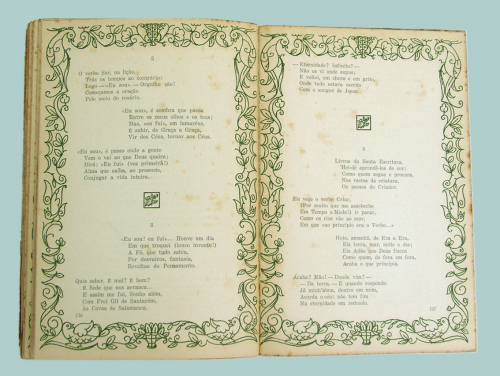 2
O verbo Ser, na lição,
Trás os tempos ao contrário:
Logo — «Eu sou». — Orgulho vão!
Começamos a oração
Pelo meio do rosário.
«Eu sou», é sombra que passa
Entre os meus olhos e os teus;
Mas, «eu fui», em lumaréus,
É subir, de Graça a Graça,
Vir dos Céus, tornar aos Céus.
«Eu sou», é passo onde a gente
Vem e vai ao que Deus queira;
Dizei: «Eu fui» (vez primeira!)
Alma que saiba, ao presente,
Conjugar a vida inteira.
3
«Eu sou! eu fui»... Houve um dia
Em que troquei (louco invento!)
A Fé, que tudo sabia,
Por desvairos, fantasia,
Revoltas do Pensamento.
Quis saber. E mal? E bem?
É Sede que nos arrasca...
E assim me fui, Sonho além,
Com Frei Gil de Santarém,
Às Covas de Salamanca.
156
— Eternidade? Infinito? —
Não os vi onde supus;
E voltei, em choro e em grito,
Onde tudo estava escrito
Com o sangue de Jesus.
5
Livros da Santa Escritura,
Hei-de aprendê-los de cor;
Como quem segue e procura,
Nos rastos da criatura,
Os passos do Criador.
Eu vejo o verbo Criar,
(Por muito que me assoberbe
Em Tempo e Modo!) ir passar,
Como os rios vão ao mar,
Em que «ao princípio era o Verbo...»
Hoje, amanhã, de Era a Era,
Eis terra, mar, noite e dia;
Em Adão que Deus fizera
Como quem, de fora em fora,
Acaba o que principia.
Acaba? Não! — Donde vens? —
— Da terra. — E quando respondo
Já minh'alma, dentro em mim,
Acorda e
não tem fim
Na eternidade em redondo.
157